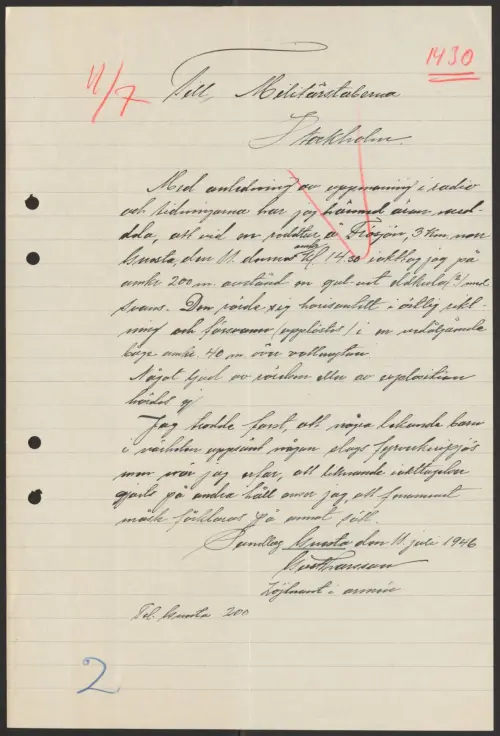 1430
11/7
Till Militärstaberna
Stockholm.
Med anledning av uppmaning i radio
och tidningarna har jag härmed äran med-
dela, att vid en roddtur å Frösjön, 3 km norr
Gnesta, den 11. dennes
omkr.
kl 1430 iakttog jag på
omkr 200 m. avstånd en gul-vit eldkula (?) med
svans. Den rörde sig horisontellt i östlig rikt-
ning och försvann (upplöstes) i en
båge omkr. 40 m över vattenytan.
Något ljud av rörelsen eller av explosionen
hördes ej
Jag trodde först, att några lekande barn
i närheten uppsänt någon slags fyrverkeripjäs
men när jag erfar, att liknande iakttagelser
gjorts på andra håll anser jag, att fenomenet
måste förklaras på annat sätt.
Gnesta den 11. juli 1946
Löjtnant i armén
Tel. Gnesta 200
2